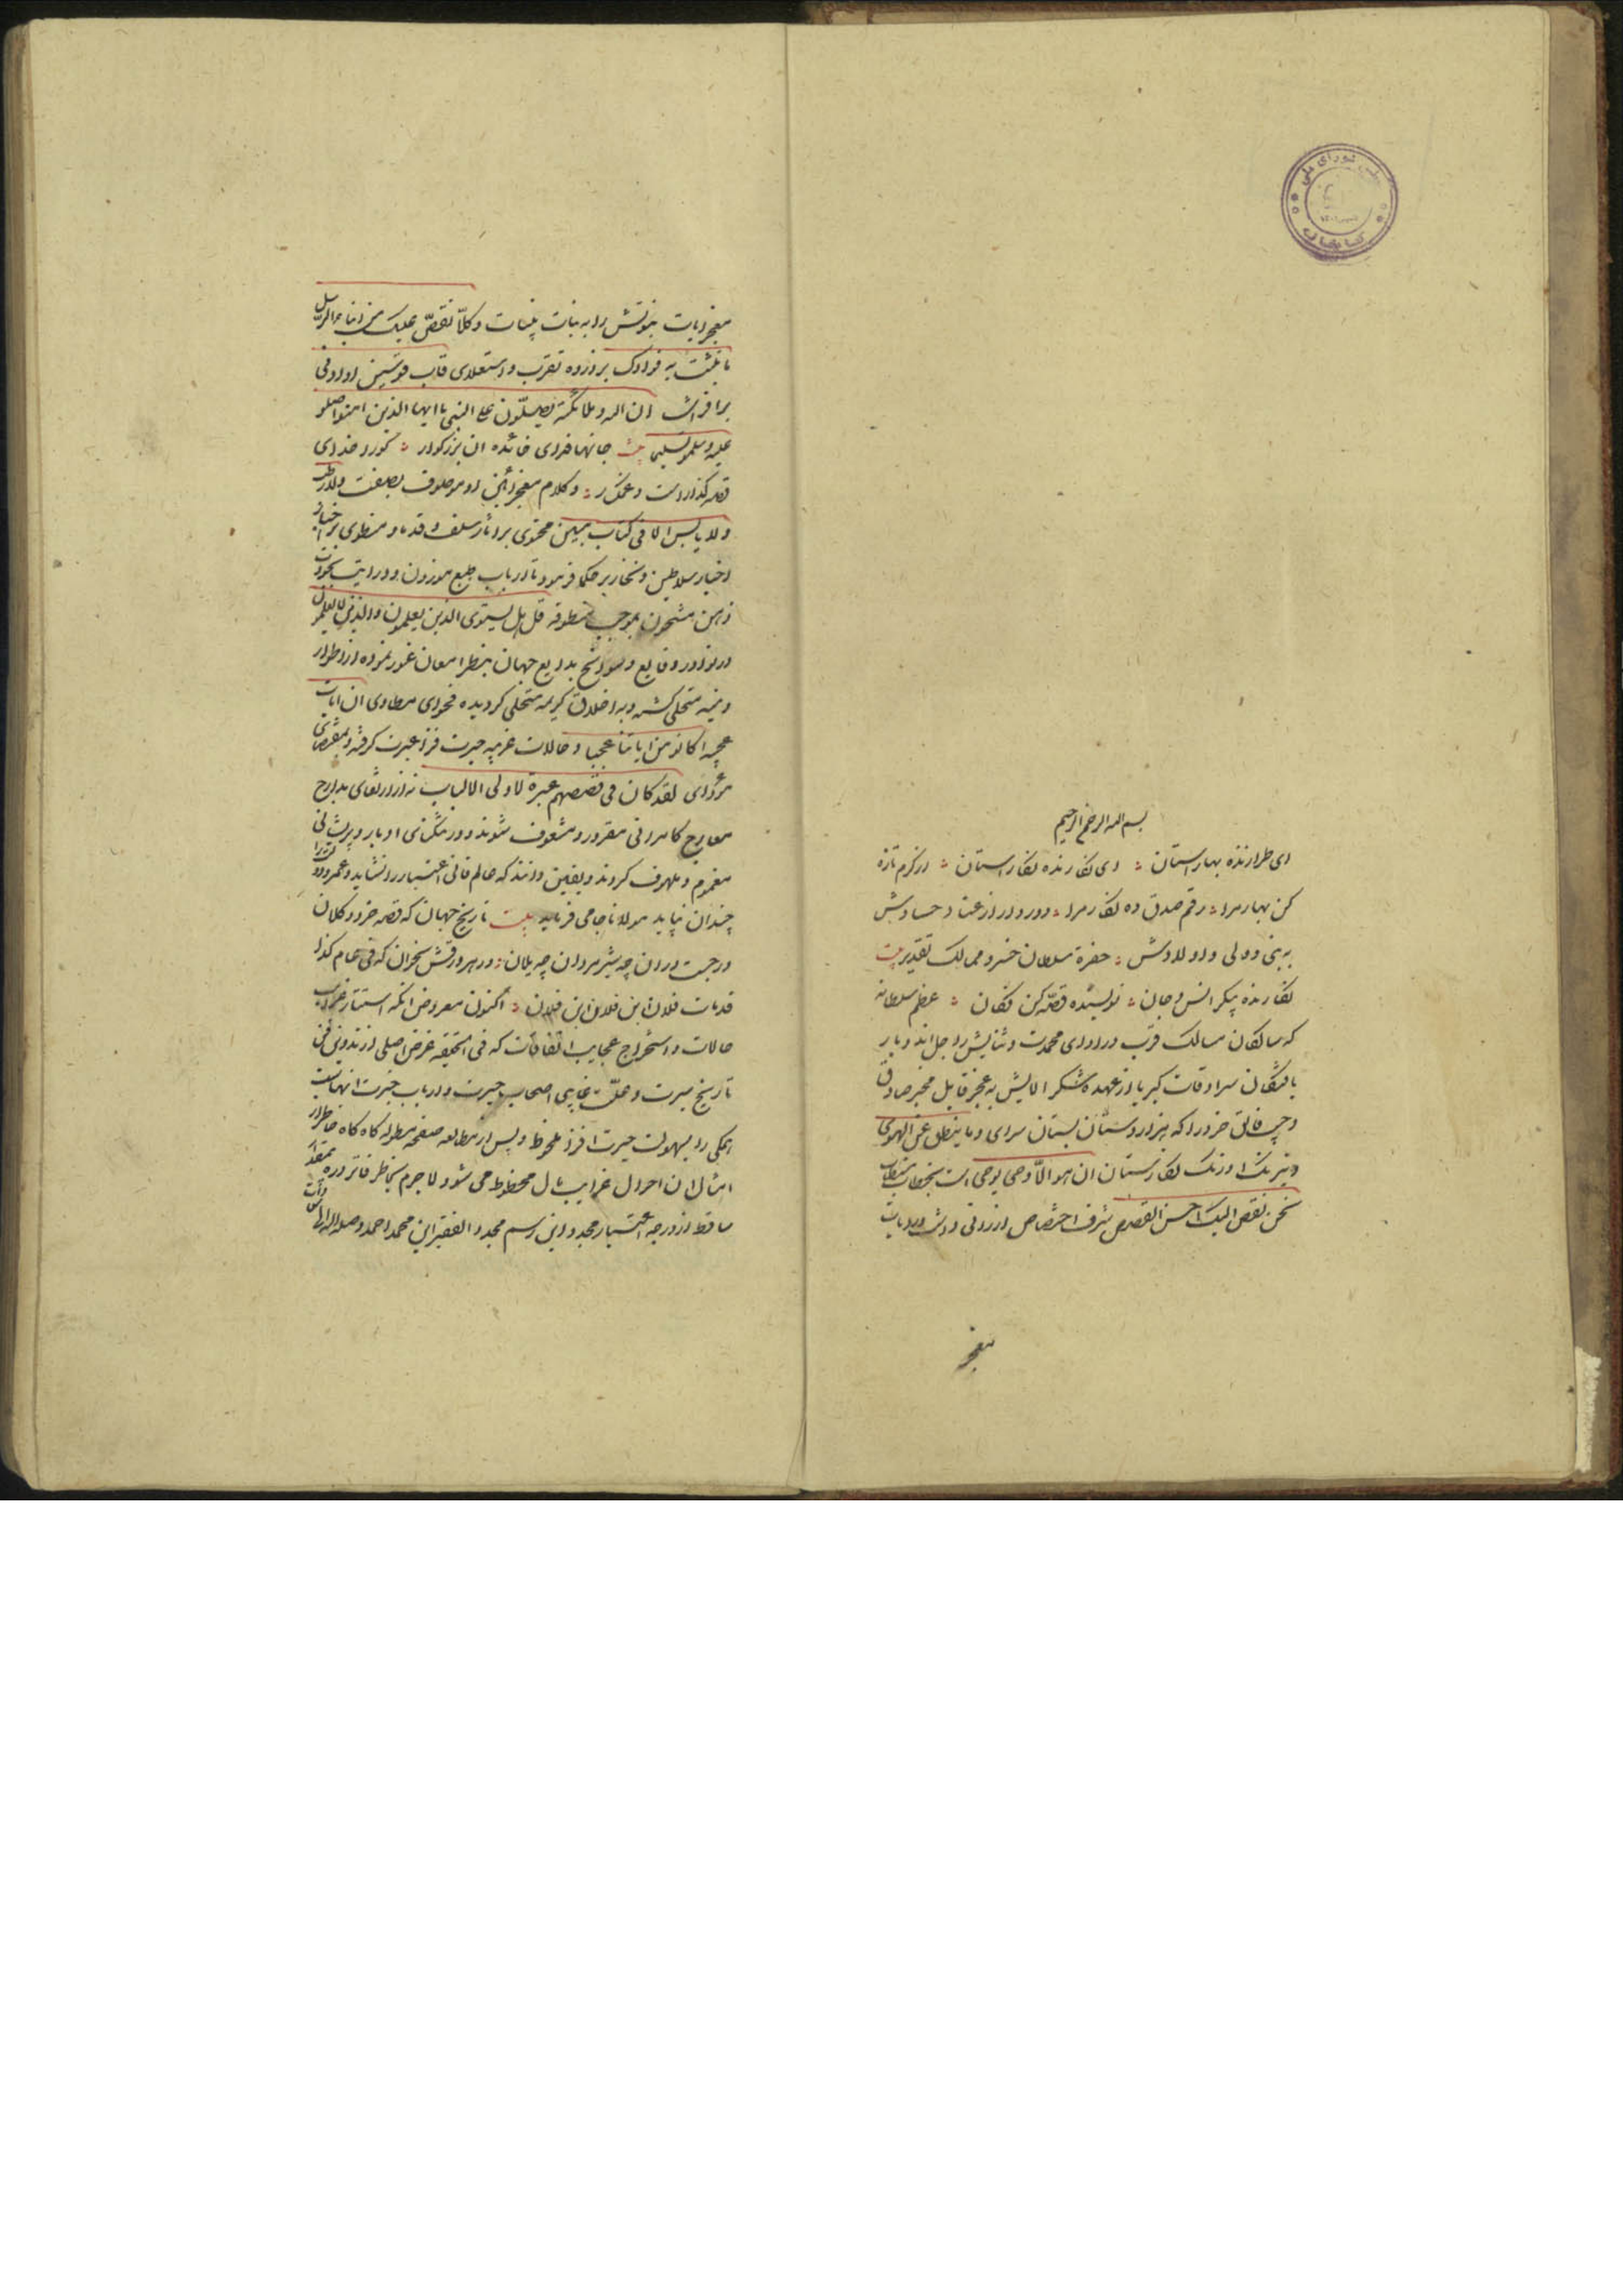 شورای ملی
کتابخانه
بسم الله الرحمن الرحیم
ای طرازنده بهارستان وی نگارنده نگارستان از کرم تازه
کن بهار مرا رقم صدق ده نگار مرا دور دار از عناد حسادش
به نبی و ولی و اولادش حضرة سلطان خسرو ممالک تقدیر بیت
نگارنده پیکر انس و جان نویسنده قصه کن فکان عظم سلطانه
که سالکان مسالک قرب در ادای محمدت و ثنایش راجل اند و بار
یافتگان سرادقات کبریا از عهده شکر الایش به عجز قایل مخبر صادق
خرد را که هزار دستان بستان سرای وما ینطق عن الهوی
و نیرنک اورنک نگارستان ان هو الّا وحی یوحی است بخطاب مستطاب
نحن نقص الیک احسن القصص شرف اختصاص ارزانی داشت و روایات
معجز
معجز ایات نبوتش را به بینات وکلّا نقصّ علیک من انباء الرسل
ما نثبت به فوادک بر ذروه تقرب و استعلای قاب قوسین او ادنی
بر افراشت ان الله وملائکته یصلّون علی النبی یا ایها الذین امنوا صلو
علیه وسلمو تسلیما بیت جانها فدای ان بزرکوار کو را خدای
قصه گذار است و غمکسار و کلام معجز او موصوف بصفت ولا رطب
ولا یابس الا فی کتاب مبین محتوی بر اثار سلف و قدما و منطوی بر
اخبار سلاطین و حکما فرمود تا ارباب طبع موزون و درایت بجودت
ذهن مشحون بموجب منطوقه قل هل یستوی الذین یعلمون والذین لا یعلمون
در نوادر وقایع و سوانح بدایع جهان بنظر امعان غور نموده از اطوار
ذمیمه متخلی کشته و به اخلاق کریمه متحلی کردیده فحوای مطاوی ان ایات
عجیبه کانو من ایاتنا عجبا و حالات غریبه حیرت فزا عبرت کرفته و بمقتضای
مؤدای لقد کان فی قصصهم عبرة لاولی الالباب نه از ارتقای مدارج
معارج کامرانی مغرور و مشعوف شوند و در تنکنای ادبار و پریشانی
مغموم و ملهوف کردند و یقین دانند که عالم فانی اعتبار را نشاید و عمر
چندان نپاید مولانا جامی فرماید بیت تاریخ جهان که قصه خرد و کلان
درجست در ان چه شیر مردان چه یلان در هر ورقش بخوان که فی عام کذا
قد مات فلان ابن فلان ابن فلان اکنون معروض انکه
حالات و استخراج عجایب اتفاقات که فی الحقیقه غرض اصلی از تدوین فن
تاریخ سیرت و علت غایی اصحاب حیرت و ارباب خبرت انهاست
همکی را بسهولت حیرت افزا ملحوظ و پس از مطالعه صفحه مطوله کاه کاه خاطر از
امثال ان احوال غرایب مال محظوظ می شود لاجرم بخاطر فاتر
ساقط از درجه اعتبار مجدد این رسم مجدد الفقیر ابن محمد احمد وصله الله الی